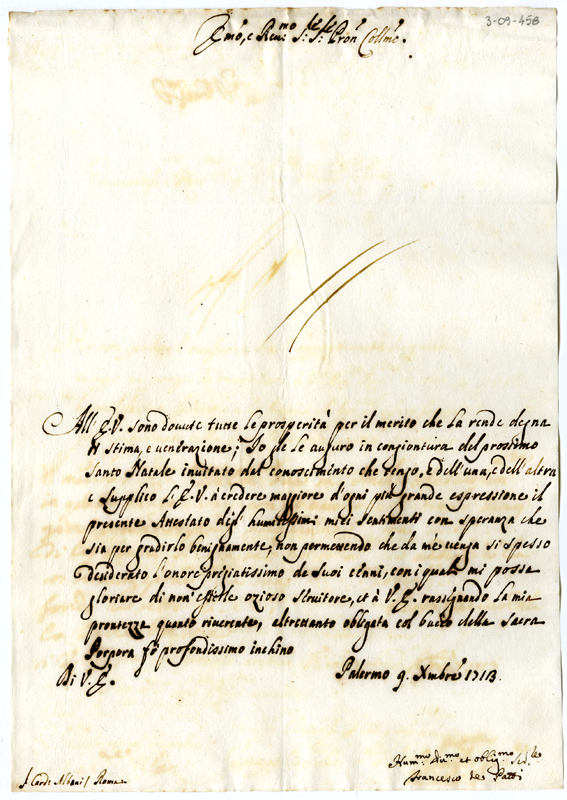 3-09-458
Em.º, e Reu.mo S.re S.re Pron' Collmo.
All' E. V. sono douute tutte le prosperità per il merito che la rende degna
di stima, e uenerazione; Io gle le auguro in congiontura del prossimo
Santo Natale inuitato dal conoscimento che tengo, e dell'una, e dell'altra
e Supplico L'E. V. à credere maggiore d'ogni più grande espressione il
presente Attestato degl' humilissimi miei sentimenti con speranza che
sia per gradirlo benignamente, non permettendo che da me uenga si spesso
desiderato l'onore pregiatissimo de suoi cenni, con i quali mi possa
gloriare di non esserle ozioso seruitore, et à V. E. rassegnando la mia
prontezza quanto riuerente, altretanto obligata col bacio della Sacra
Porpora fò profondissimo inchino
Di V. E.
Palermo 9. Xmbre 1713.
Hum.mo Diu.mo et oblig.mo Se.re
Francesco de Patti
S. Card. Albani / Roma